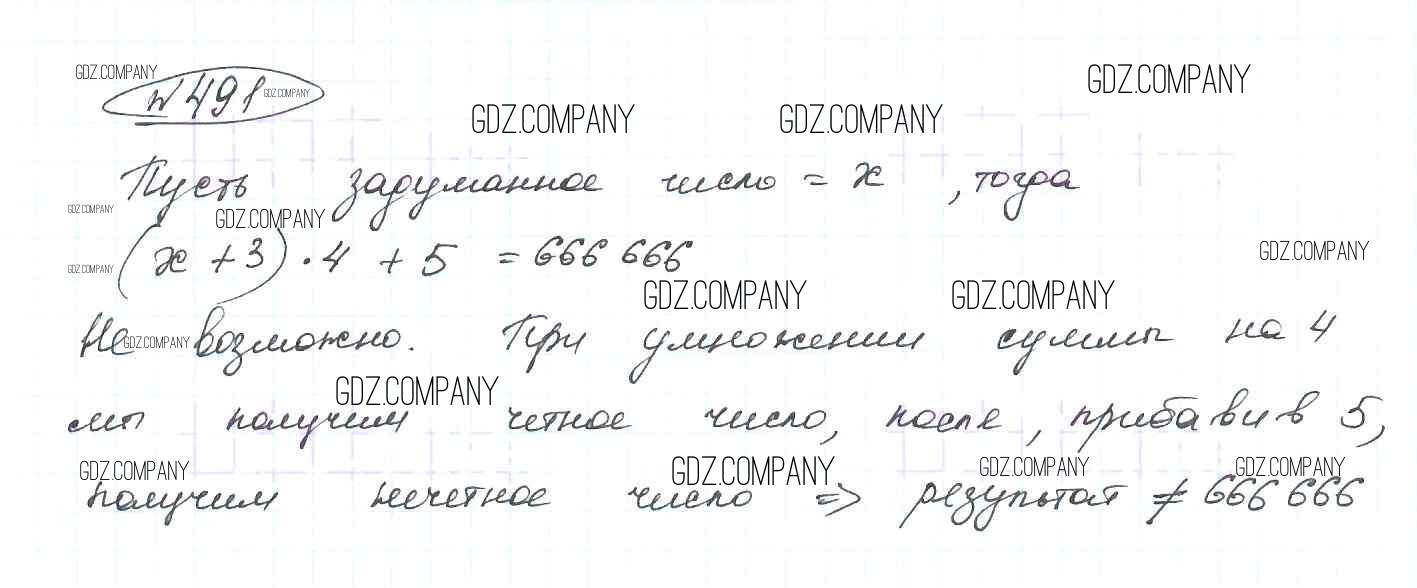 GDZ.COMPANY
№ 491 GDZ.COMPANY
GDZ.COMPANY
GDZ.COMPANY GDZ.COMPANY
Пусть задуманное число = x , тогда
GDZ.COMPANY GDZ.COMPANY
(x + 3) · 4 + 5 = 666 666
GDZ.COMPANY GDZ.COMPANY
GDZ.COMPANY GDZ.COMPANY
Не возможно. При умножении суммы на 4
GDZ.COMPANY
GDZ.COMPANY
мы получим четное число, после, прибавив 5,
GDZ.COMPANY GDZ.COMPANY GDZ.COMPANY GDZ.COMPANY
получим нечетное число => результат ≠ 666 666